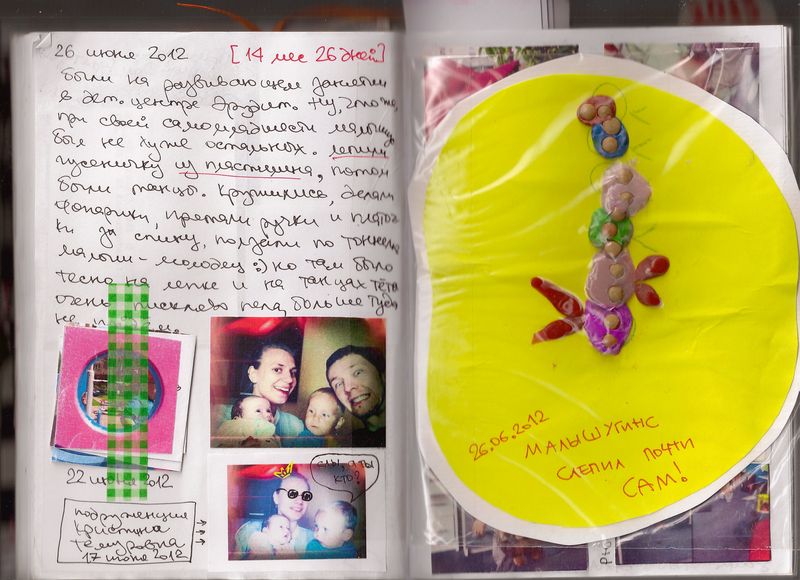 26 июня 2012 [14 мес 26 дней]
были на развивающем занятии
в дет. центре Эрудит. Ну, что же,
при своей самомладшести малыш
был не хуже остальных. лепили
гусеничку из пластилина, потом
были танцы. Кружились, делали
фонарики, прятали ручки и платоч
ки за спину, ползали по тоннелю
малыш-молодец :) но там было
тесно на лепке и на танцах тётя
очень пискляво пела, больше туда
не
22 июня 2012
подруженция
Кристина
Темуровна
17 июня 2012
а ты
кто?
26.06.2012
МАЛЫШУГИНС
СЛЕПИЛ ПОЧТИ
САМ!